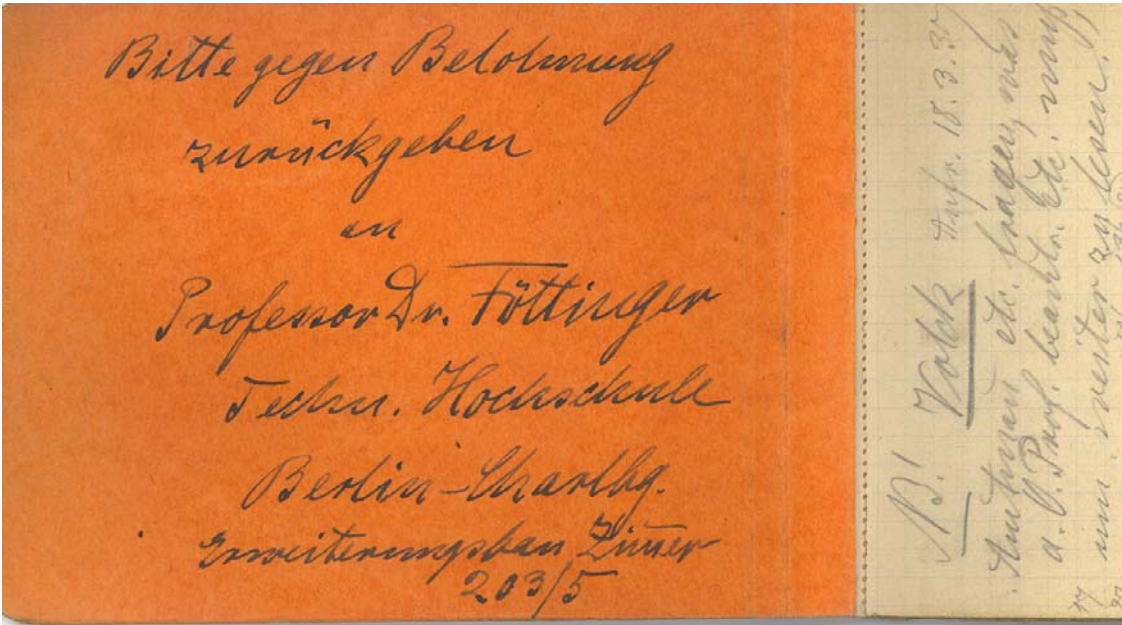 Bitte gegen Belohnung
zurückgeben
an
Professor Dr. Föttinger
Techn. Hochschule
Berlin-Charlbg.
Erweiterungsbau Zim̄er
203/5
Volck 18.3.37
etc. fragen, was
a. o. Prof. etc. muß
um weiter zu lesen.